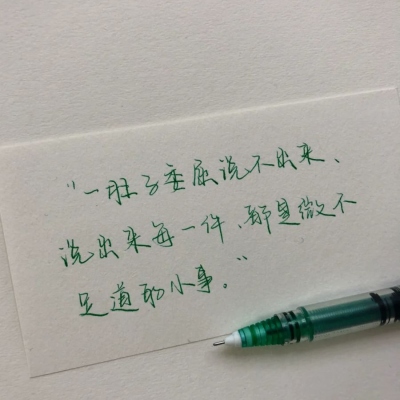 “一肚子委屈说不出来、
说出来每一件、都是微不
足道的小事。”